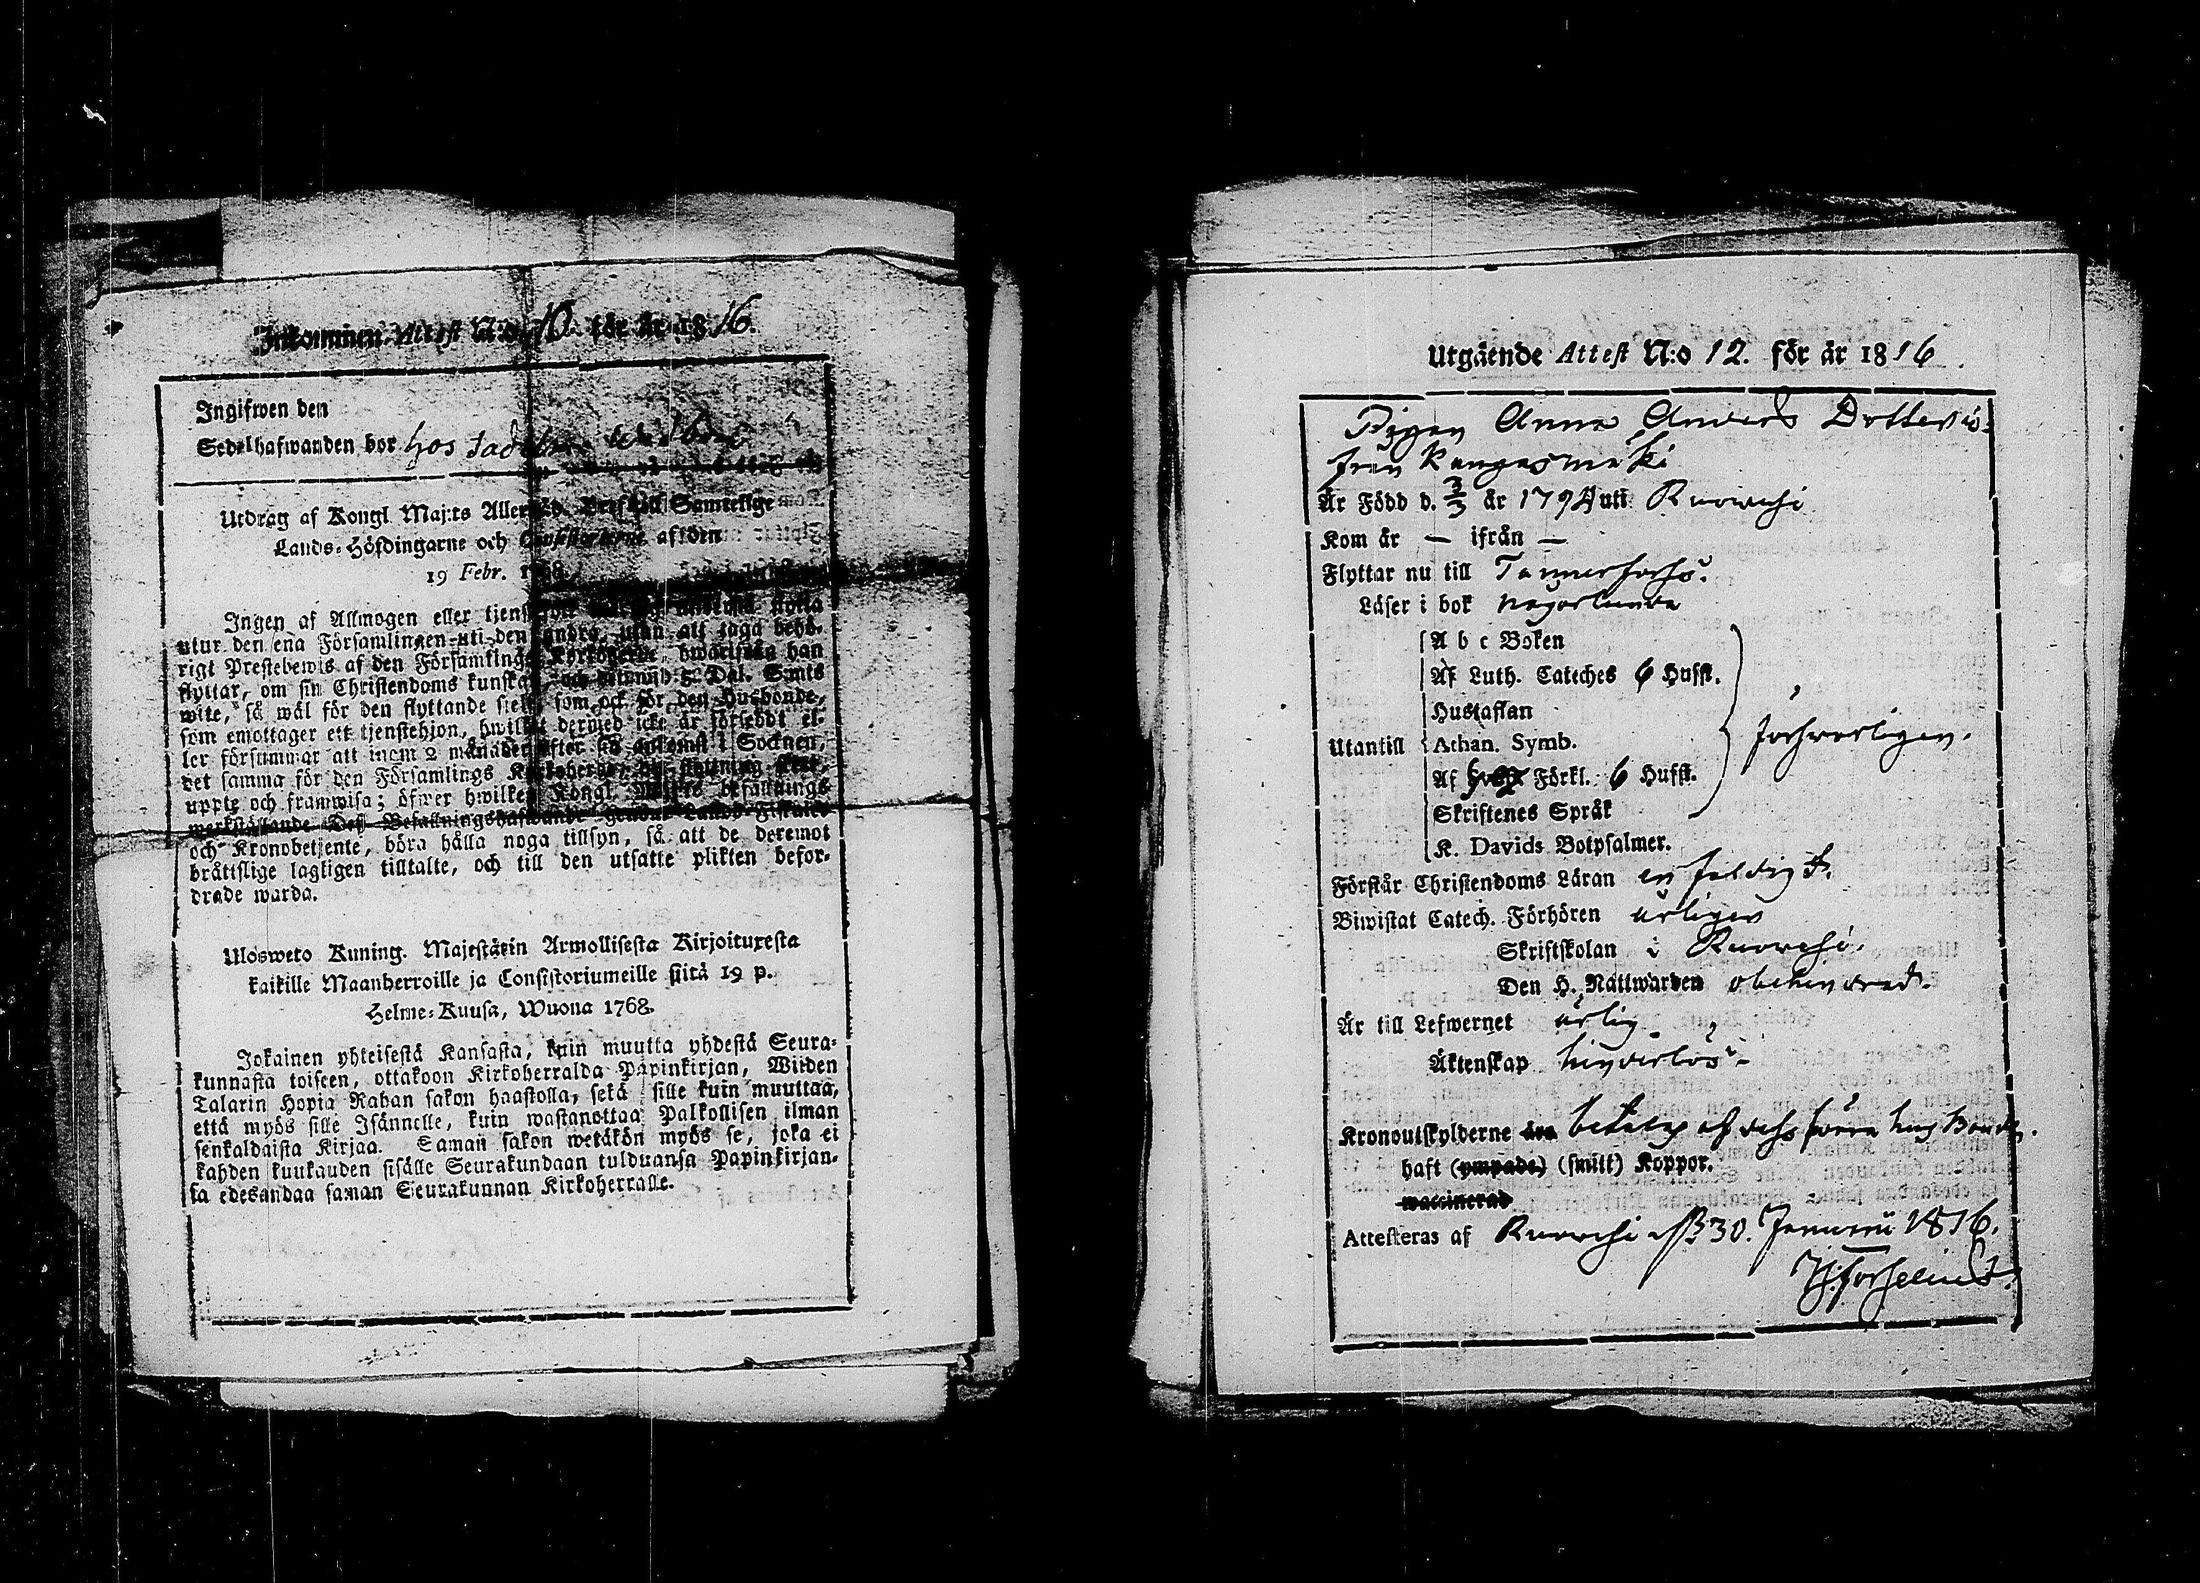 Inkommen Attest N:o 10. för år 1816.
Ingifwen den
Sedelhafwanden bor hos
Utdrag af Kongl. Maj:ts Allernåd. Bref till Samtellge
Lands-Höfdingarne och Consistorierne af den
19 Febr. 1768.
Ingen af Allmogen eller tjenste flytta
utur den ena Församlingen uti den andra, utan att taga behö-
rigt Prestebewis af den Församlings Kyrkoherde, hwarifrån han
flyttar, om sin Christendoms kunskap, och wid 5 Dal. S:mts
wite, så wäl för den flyttande sielf, som ock för den Husbonde,
som emottager ett tjenstehjon, hwilket dermed icke är försedt el-
ler försummar att inom 2 månader efter sid ankomst i Socknen,
det samma för den Församlings Kyrkoherde dit flyttning sker,
uppte och framwisa; öfwer hwilket Kongl. Maj:ts befallnings
werkställande Deß Befallningshafwande genom Lands-Fiskaler
och Kronobetjente, böra hålla noga tillsyn, så att de deremot
bråttslige lagligen tilltalte, och till den utsatte plikten befor-
drade warda.
Ulosweto Kuning. Majestätin Armollisesta Kirjoituxesta
kaikille Maanherroille ja Consistoriumeille siitä 19 p.
Helme-Kuusa, Wuona 1768.
Jokainen yhteisestä Kansasta, kuin muutta yhdestä Seura-
kunnasta toiseen, ottakoon Kirkoherralda Papinkirjan, Wiiden
Talarin Hopia Rahan sakon haastolla, sekä sille kuin muuttaa,
että myös sille Isännelle, kuin wastanottaa Palkollisen ilman
senkaldaista Kirjaa. Saman sakon wetäkön myös se, joka ei
kahden kuukauden sisälle Seurakundaan tulduansa Papinkirjan-
sa edesandaa saman Seurakunnan Kirkoherralle.
Utgående Attest N:o 12. för år 1816
Pigan Anna Anders Dotter
från Kangasmäki
Är Född d. 3/3 år 1794 uti Ruovesi
Kom år — ifrån —
Flyttar nu till Tammerfors.
Läser i bok någorlunda
A b c Boken
Af Luth. Cateches 6 Hufst.
Hustaflan
Utantill Athan. Symb. försvarligen.
Af Förkl. 6 Hufst.
Skriftenes Språk
K. Davids Botpsalmer.
Förstår Christendoms Läran enfaldigt.
Biwistat Catech. Förhören årligen
Skriftskolan i Ruovesi.
Den H. Nattwarden obehindrad.
Är till Lefwernet ärlig
Äktenskap hinderlös
Kronoutskylderne betalas af dess förra husbonde.
haft (ympade) (smitt) Koppor.
waccinerad
Attesteras af Ruovesi d. 30. Januarii 1816.
H. Forselius